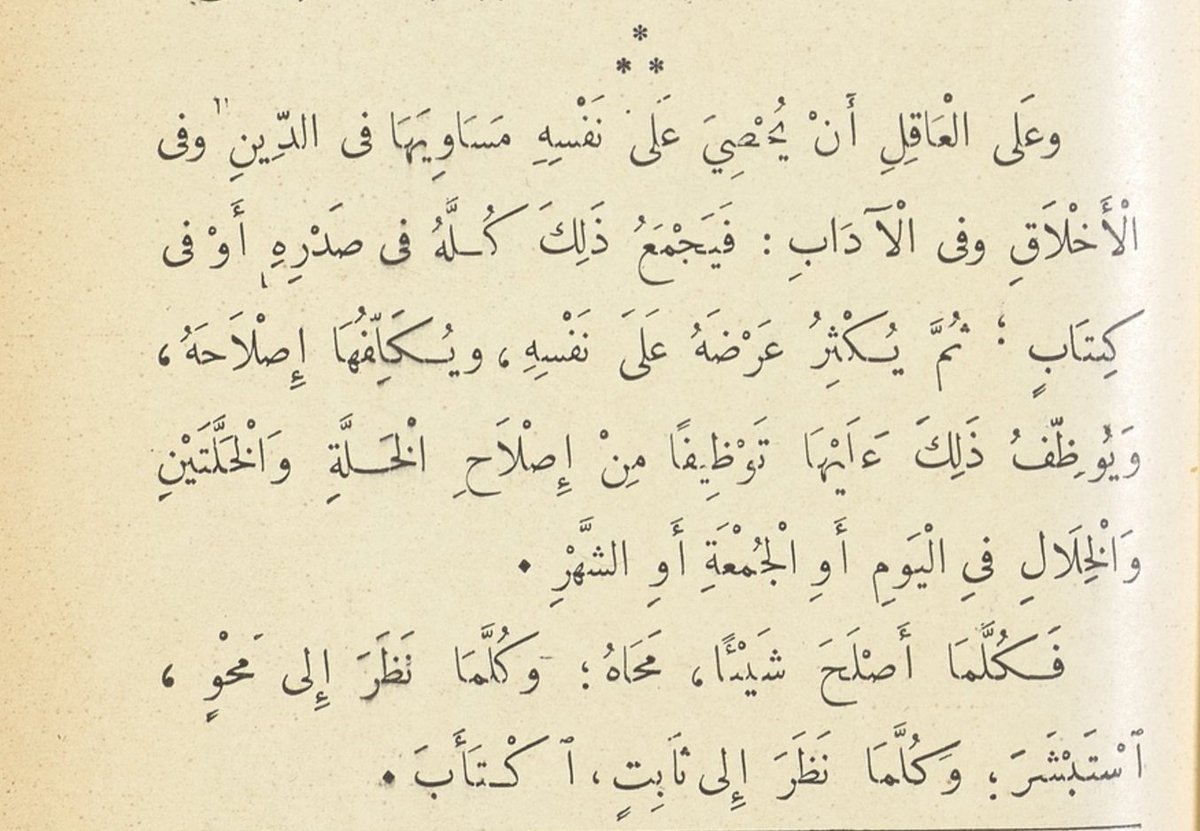 *
* *
وعَلَى الْعَاقِلِ أَنْ يُحْصِيَ عَلَى نَفْسِهِ مَسَاوِيَهَا فى الدِّينِ وفى
الْأَخْلَاقِ وفى الْآدَابِ : فَيَجْمَعُ ذَلِكَ كُلَّهُ فى صَدْرِهِ أَوْ فى
كِتَابٍ ؛ ثُمَّ يُكْثِرُ عَرْضَهُ عَلَى نَفْسِهِ ، ويُكَلِّفُهَا إِصْلَاحَهُ ،
وَيُوَظِّفُ ذَلِكَ عَلَيْهَا تَوْظِيفًا مِنْ إِصْلَاحِ الْخَلَّةِ وَالْخَلَّتَيْنِ
وَالْخِلَالِ فىِ الْيَومِ أَوِ الْجُمْعَةِ أَوِ الشَّهْرِ .
فَكُلَّمَا أَصْلَحَ شَيْئًا ، مَحَاهُ ؛ وَكُلَّمَا نَظَرَ إِلى مَحْوٍ ،
ٱسْتَبْشَرَ ؛ وَكُلَّمَا نَظَرَ إِلى ثَابِتٍ ، ٱكْتَأَبَ .